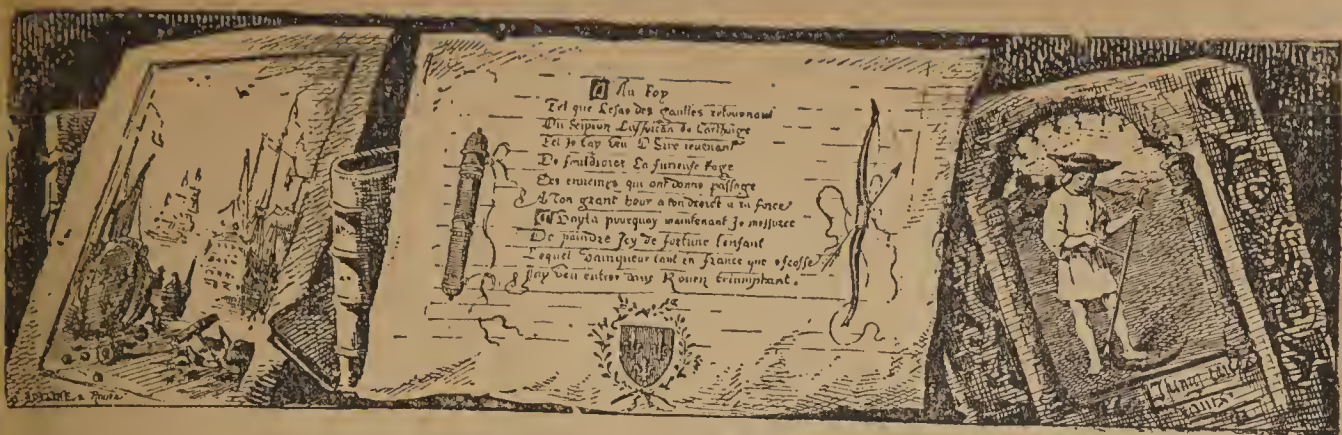 Au Roy
Tel que Cesar des gaulles retournant
Ou Scipion de Carthaige
Tel Je tay veu O Sire revenant
De fouldroier La furieuse Rage
Des ennemys qui ont donne passage
A Ton grant heur a ton droict a ta force
Voyla pourquoy maintenant Je
De paindre Jcy de fortune lenfant
Lequel Vainqueur tant en france que escosse
Jay veu entrer dans Rouen triumphant.